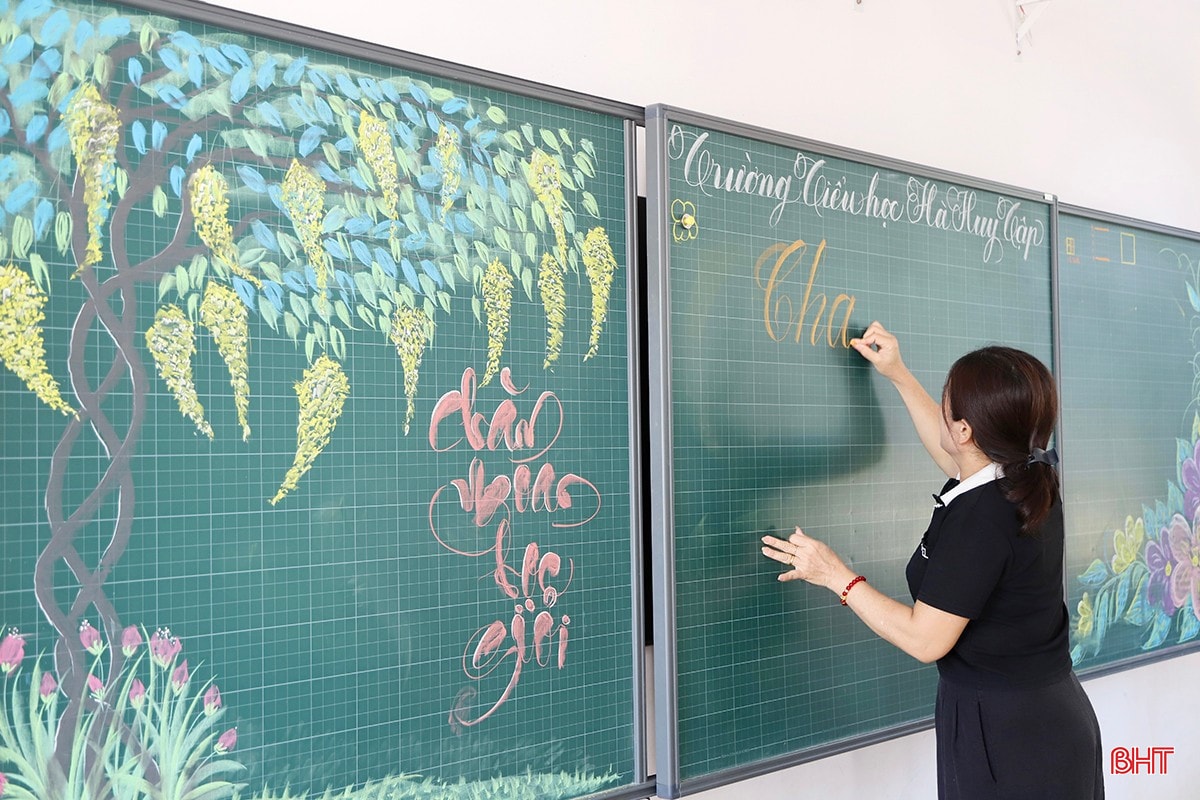 chăn
ngoan
học
giỏi
Trường Tiểu học Hà Huy Tập
Cha
BHT